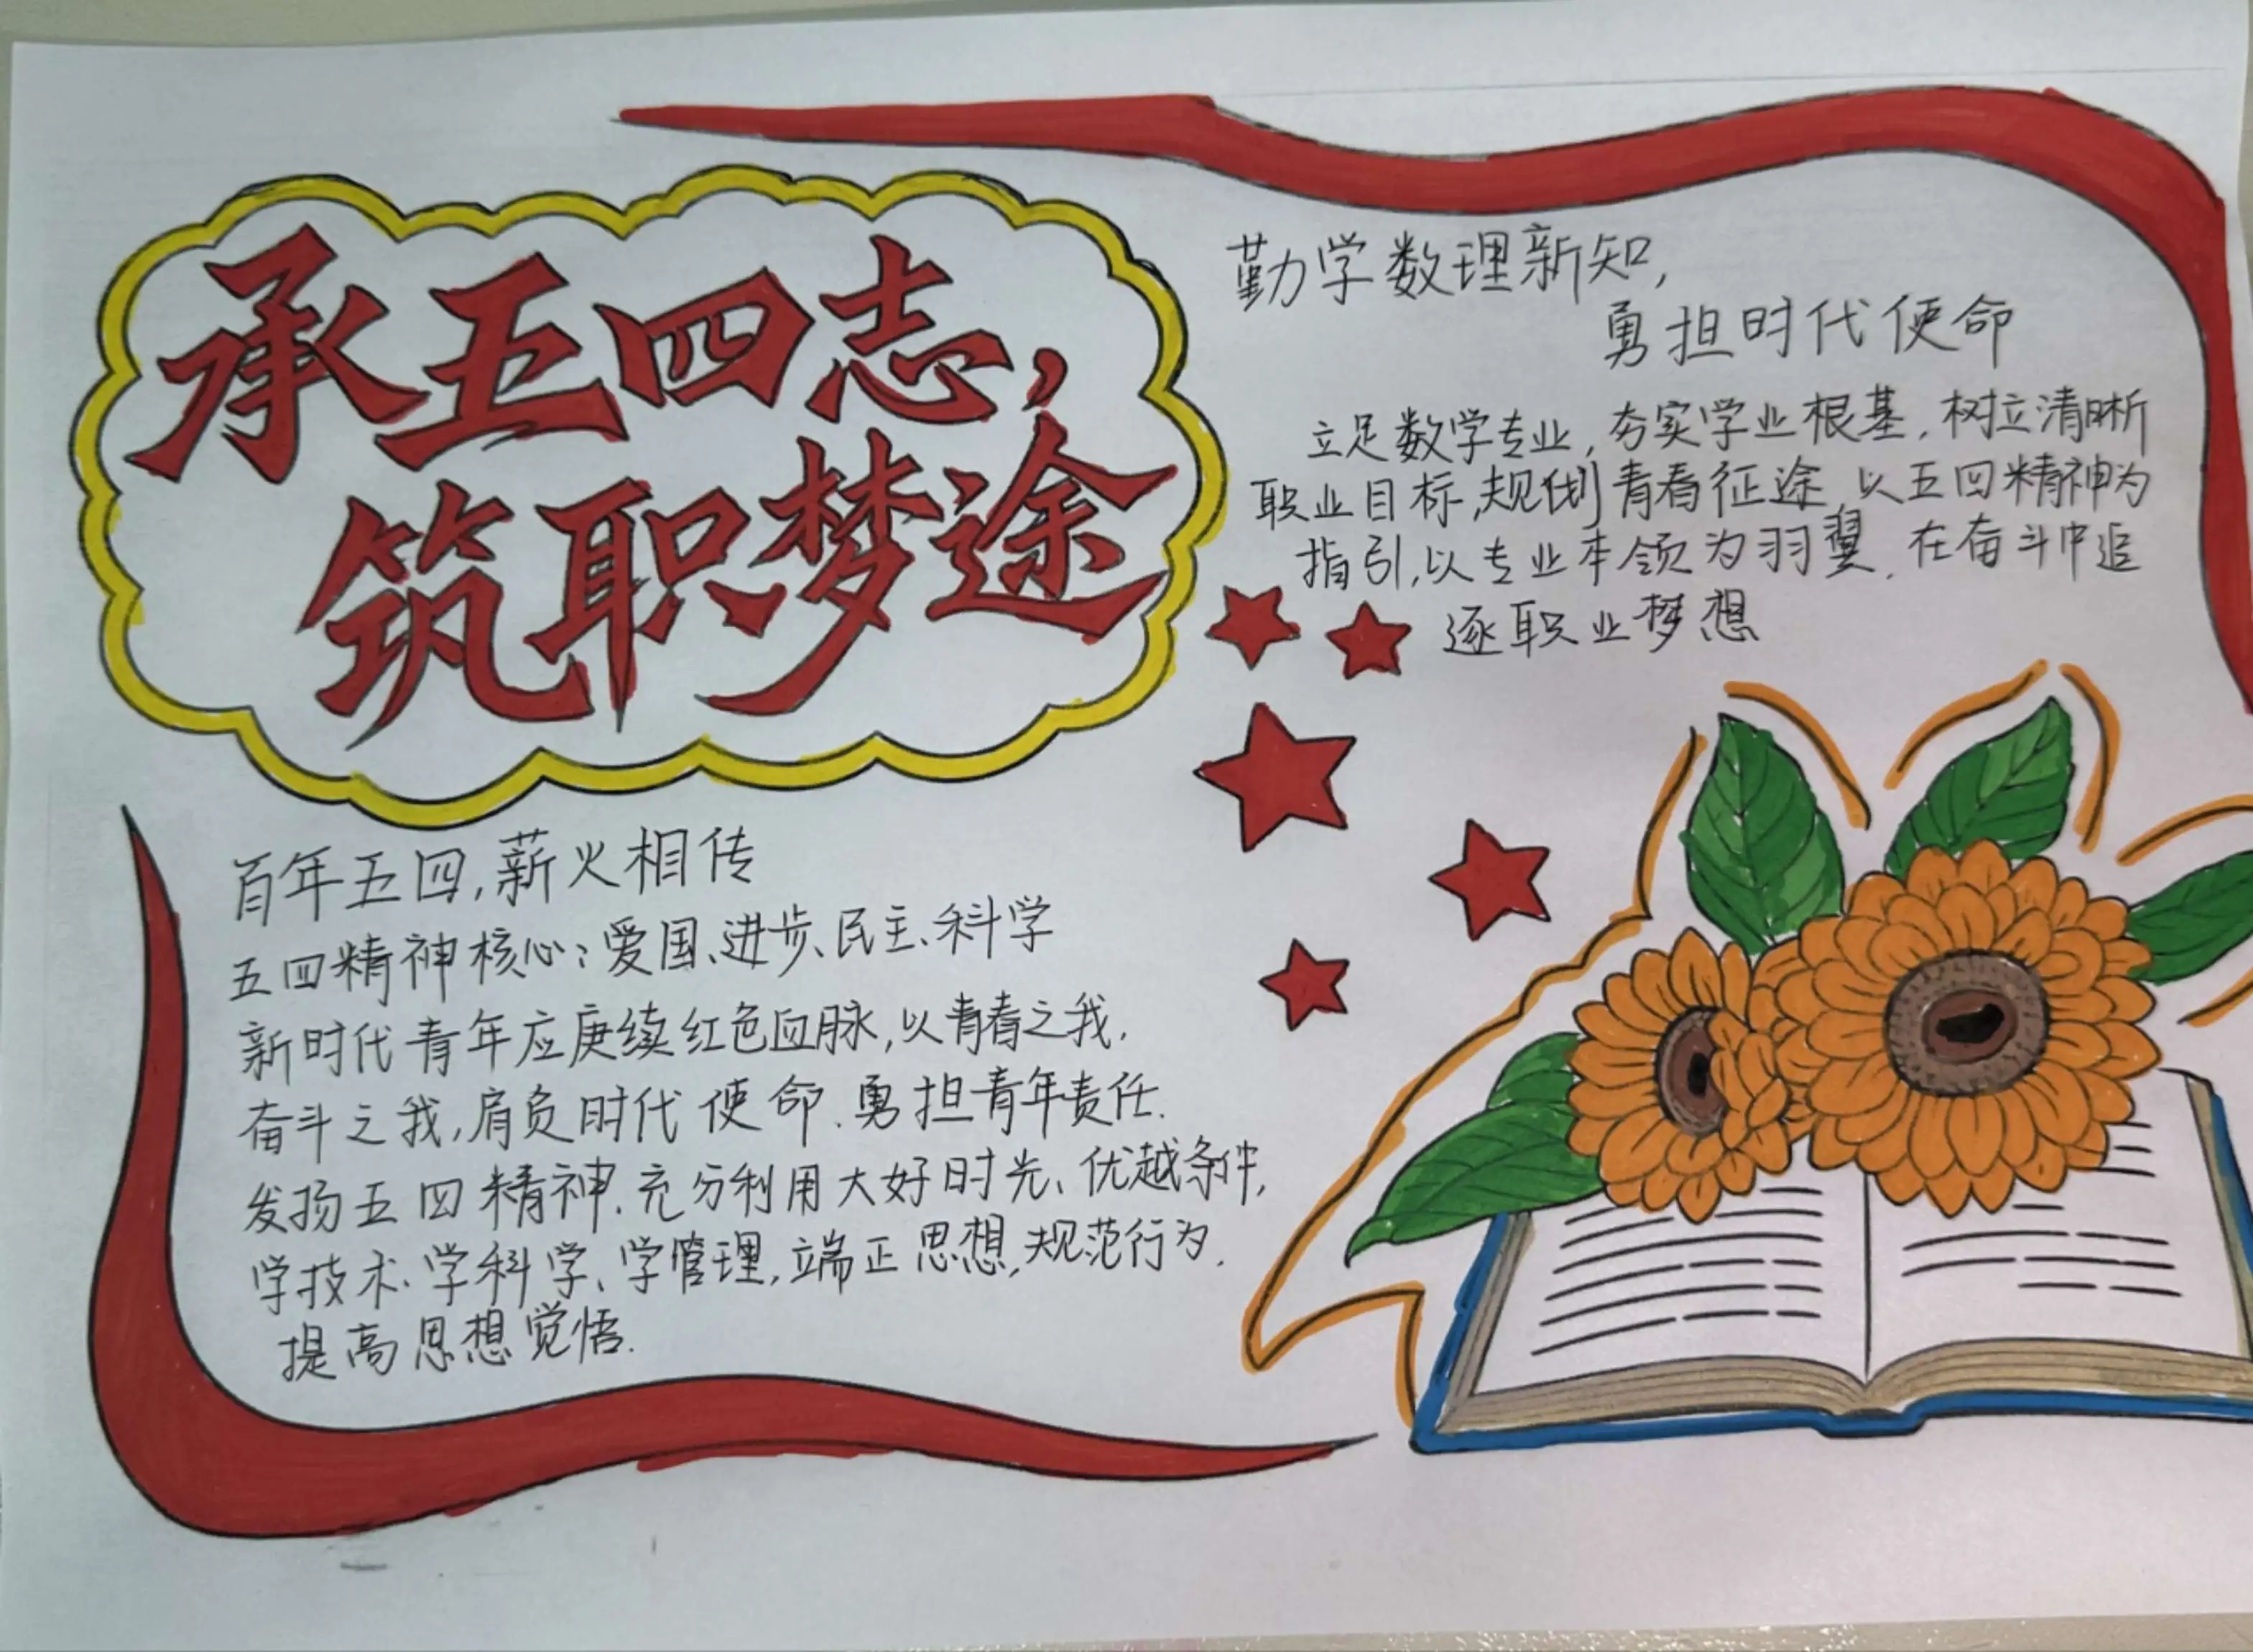 承五四志，
筑职梦途
勤学数理新知，
勇担时代使命
立足数学专业，夯实学业根基，树立清晰
职业目标，规划青春征途，以五四精神为
指引，以专业本领为羽翼，在奋斗中追
逐职业梦想
百年五四，薪火相传
五四精神核心：爱国、进步、民主、科学
新时代青年应赓续红色血脉，以青春之我，
奋斗之我，肩负时代使命，勇担青年责任.
发扬五四精神、充分利用大好时光、优越条件，
学技术、学科学、学管理，端正思想，规范行为，
提高思想觉悟.